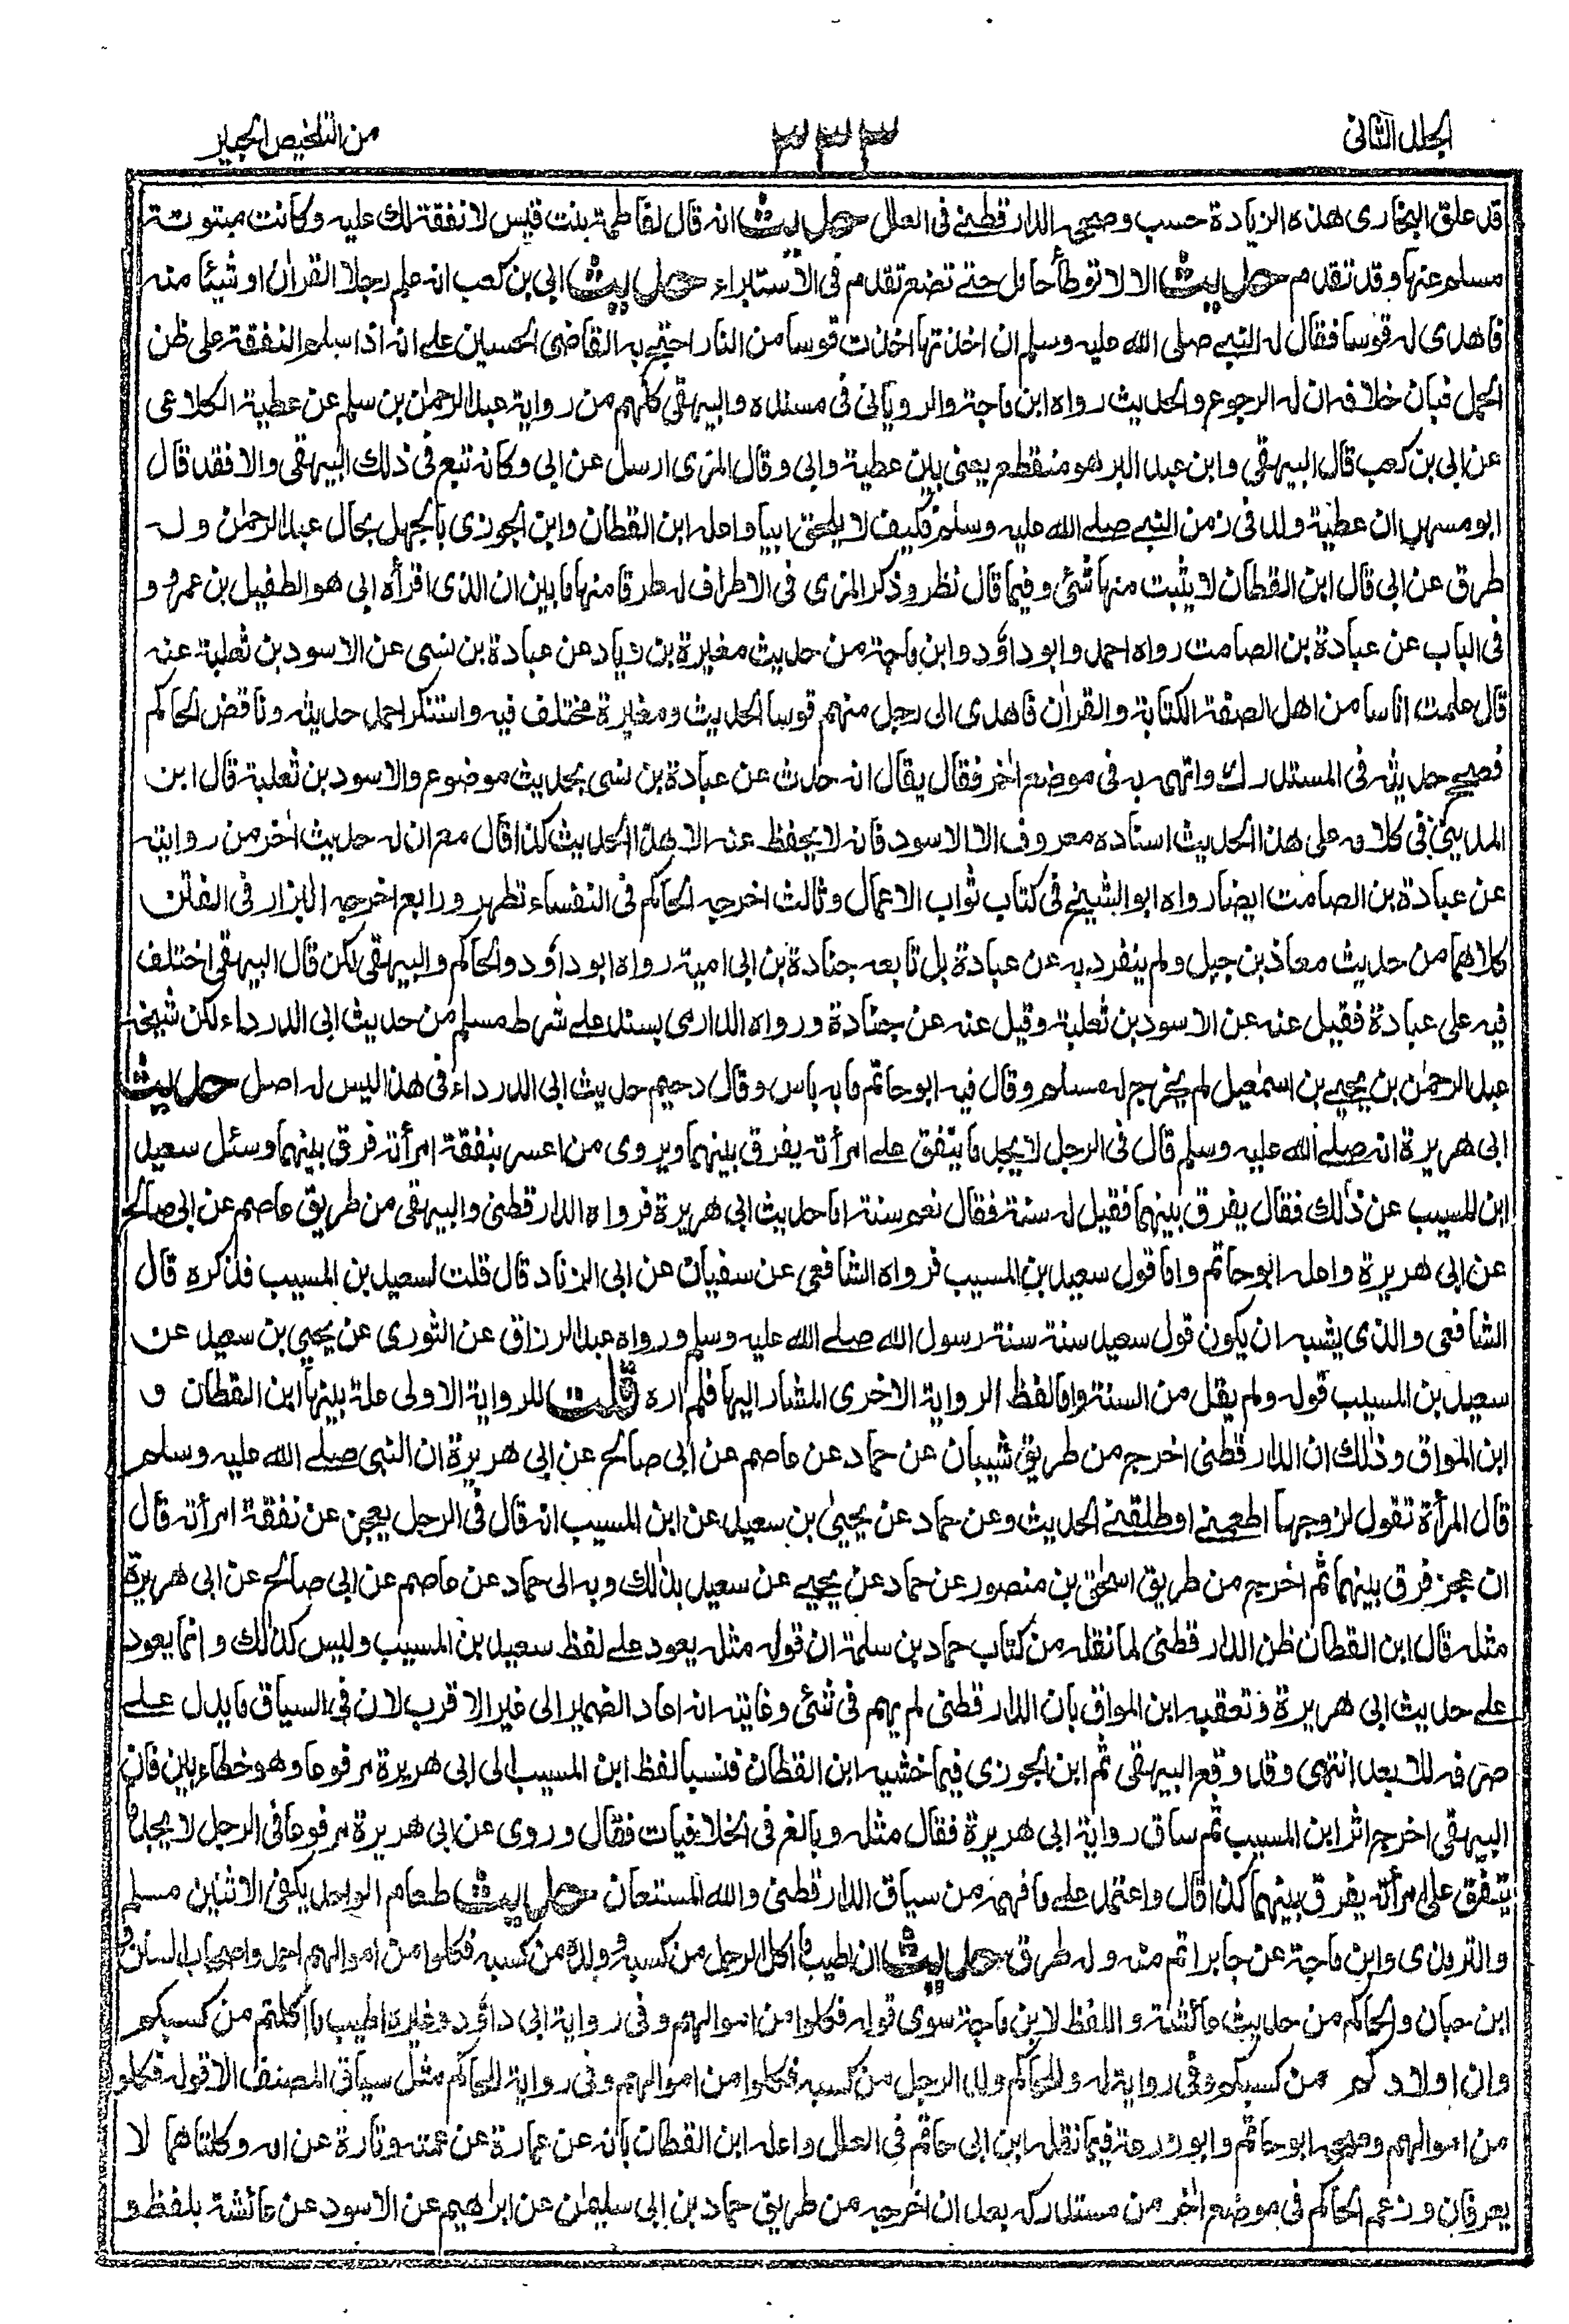 الجلد الثانى
٣٣٣
من التلخيص الحبير
قد علق البخارى هذه الزيادة حسب وصححه الدارقطنے فى العلل حديث انه قال لفاطمة بنت قيس لا نفقة لك عليه وكانت مبتوتة
مسلم عنها وقد تقدم حديث الا لا توطأ حامل حتے تضع تقدم فى الاستبراء حديث ابى بن كعب انه علم رجلا القران او شيئا منه
فاهدى له قوسا فقال له النبے صلى الله عليه وسلم ان اخذتها اخذت قوسا من النار احتج به القاضى الحسين علے انه اذا سلم النفقة على ظن
الحمل فبان خلافه ان له الرجوع والحديث رواه ابن ماجة والرويانى فى مسنده والبيهقى كلهم من رواية عبد الرحمٰن بن سلم عن عطية الكلاعى
عن ابى بن كعب قال البيهقى وابن عبد البر هو منقطع يعنى بين عطية وابى وقال المزى ارسل عن ابى وكانه تبع فى ذلك البيهقى والا فقد قال
ابو مسهر ان عطية ولد فى زمن النبے صلے الله عليه وسلم فكيف لا يلحق ابيا واعله ابن القطان وابن الجوزى بالجهل بحال عبد الرحمٰن وله
طرق عن ابى قال ابن القطان لا يثبت منها شئ وفيما قال نظر وذكر المزى فى الاطراف له طرقا منها ما بين ان الذى اقرأه ابى هو الطفيل بن عمرو و
فى الباب عن عبادة بن الصامت رواه احمد وابو داؤد وابن ماجة من حديث مغيرة بن زياد عن عبادة بن نسى عن الاسود بن ثعلبة عنه
قال علمت اناسا من اهل الصفة الكتابة والقران فاهدى الى رجل منهم قوسا الحديث ومغيرة مختلف فيه واستنكر احمد حديثه وناقض الحاكم
فصحح حديثه فى المستدرك واتهمه به فى موضع اٰخر فقال يقال انه حدث عن عبادة بن نسى بحديث موضوع والاسود بن ثعلبة قال ابن
المدينى فى كلامه على هذا الحديث اسناده معروف الا الاسود فانه لا يحفظ عنه الا هذا الحديث كذا قال مع ان له حديث اٰخر من روايته
عن عبادة بن الصامت ايضا رواه ابو الشيخ فى كتاب ثواب الاعمال وثالث اخرجه الحاكم فى النفساء تطهر ورابع اخرجه البزار فى الفتن
كلاهما من حديث معاذ بن جبل ولم ينفرد به عن عبادة بل تابعه جنادة بن ابى امية رواه ابو داؤد والحاكم والبيهقى لكن قال البيهقى اختلف
فيه على عبادة فقيل عنه عن الاسود بن ثعلبة وقيل عنه عن جنادة ورواه الدارمى بسند علے شرط مسلم من حديث ابى الدرداء لكن شيخه
عبد الرحمٰن بن يحيے بن اسمٰعيل لم يخرج له مسلم وقال فيه ابو حاتم ما به باس وقال دحيم حديث ابى الدرداء فى هذا ليس له اصل حديث
ابى هريرة انه صلے الله عليه وسلم قال فى الرجل لا يجد ما ينفق علے امرأته يفرق بينهما ويروى من اعسر بنفقة امرأته فرق بينهما وسئل سعيد
ابن المسيب عن ذٰلك فقال يفرق بينهما فقيل له سنة فقال نعم سنة اما حديث ابى هريرة فرواه الدارقطنى والبيهقى من طريق عاصم عن ابى صالح
عن ابى هريرة واعله ابو حاتم واما قول سعيد بن المسيب فرواه الشافعى عن سفيان عن ابى الزناد قال قلت لسعيد بن المسيب فذكره قال
الشافعى والذى يشبه ان يكون قول سعيد سنة سنة رسول الله صلے الله عليه وسلم ورواه عبد الرزاق عن الثورى عن يحيى بن سعيد عن
سعيد بن المسيب قوله ولم يقل من السنة واما لفظ الرواية الاخرى المشار اليها فلم اره قلت للرواية الاولى علة بينها ابن القطان و
ابن المواق وذٰلك ان الدارقطنى اخرجه من طريق شيبان عن حماد عن عاصم عن ابى صالح عن ابى هريرة ان النبى صلے الله عليه وسلم
قال المرأة تقول لزوجها اطعمنے او طلقنے الحديث وعن حماد عن يحيىٰ بن سعيد عن ابن المسيب انه قال فى الرجل يعجز عن نفقة امرأته قال
ان عجز فرق بينهما ثم اخرجه من طريق اسحٰق بن منصور عن حماد عن يحيے عن سعيد بذٰلك وبه الى حماد عن عاصم عن ابى صالح عن ابى هريرة
مثله قال ابن القطان ظن الدارقطنى لما نقله من كتاب حماد بن سلمة ان قوله مثله يعود علے لفظ سعيد بن المسيب وليس كذٰلك وانما يعود
علے حديث ابى هريرة وتعقبه ابن المواق بان الدارقطنى لم يهم فى شئ وغايته انه اعاد الضمير الى غير الاقرب لان فى السياق ما يدل علے
صرفه للابعد انتهى وقد وقع البيهقى ثم ابن الجوزى فيما خشيه ابن القطان فنسبا لفظ ابن المسيب الى ابى هريرة مرفوعا وهو خطاء بين فان
البيهقى اخرج اثر ابن المسيب ثم ساق رواية ابى هريرة فقال مثله وبالغ فى الخلافيات فقال وروى عن ابى هريرة مرفوعا فى الرجل لا يجد ما
ينفق على امرأته يفرق بينهما كذا قال واعتمد علے ما فهمه من سياق الدارقطنى والله المستعان حديث طعام الواحد يكفى الاثنين مسلم
والترمذى وابن ماجة عن جابر اتم منه وله طرق حديث ان اطيب ما اكل الرجل من كسبه وولده من كسبه فكلوا من اموالهم احمد واصحاب السنن و
ابن حبان والحاكم من حديث عائشة واللفظ لابن ماجة سوى قوله فكلوا من اموالهم وفى رواية ابى داؤد وغيره اطيب ما اكلتم من كسبكم
وان اولادكم من كسبكم وفى رواية له وللحاكم ولد الرجل من كسبه فكلوا من اموالهم وفى رواية للحاكم مثل سياق المصنف الا قوله فكلوا
من اموالهم وصححه ابو حاتم وابو زرعة فيما نقله ابن ابى حاتم فى العلل واعله ابن القطان بانه عن عمارة عن عمته وتارة عن امه وكلتاهما لا
يعرفان وزعم الحاكم فى موضع اٰخر من مستدركه بعد ان اخرجه من طريق حماد بن ابى سليمٰن عن ابراهيم عن الاسود عن عائشة بلفظ و